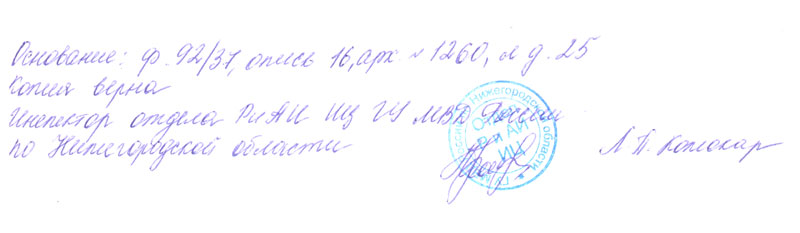 Основание: ф. 92/31, опись 16, арх № 1260, л д. 25
Копия верна
Инспектор отдела РиАИ ИЦ ГУ МВД России
по Нижегородской области
Нижегородской области
Отдел
Р и АИ
ИЦ